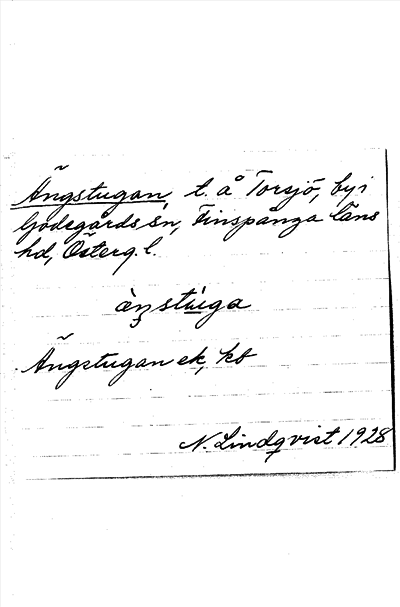 Ängstugan, t. å Torsjö, by i
Godegårds sn, Finspånga läns
hd, Österg. l.
àŋstùga
Ängstugan ek, kb
N. Lindqvist 1928